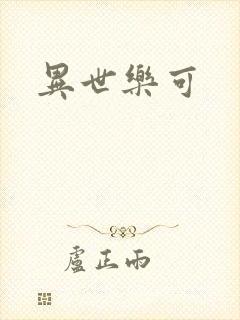 異世樂可
盧正雨